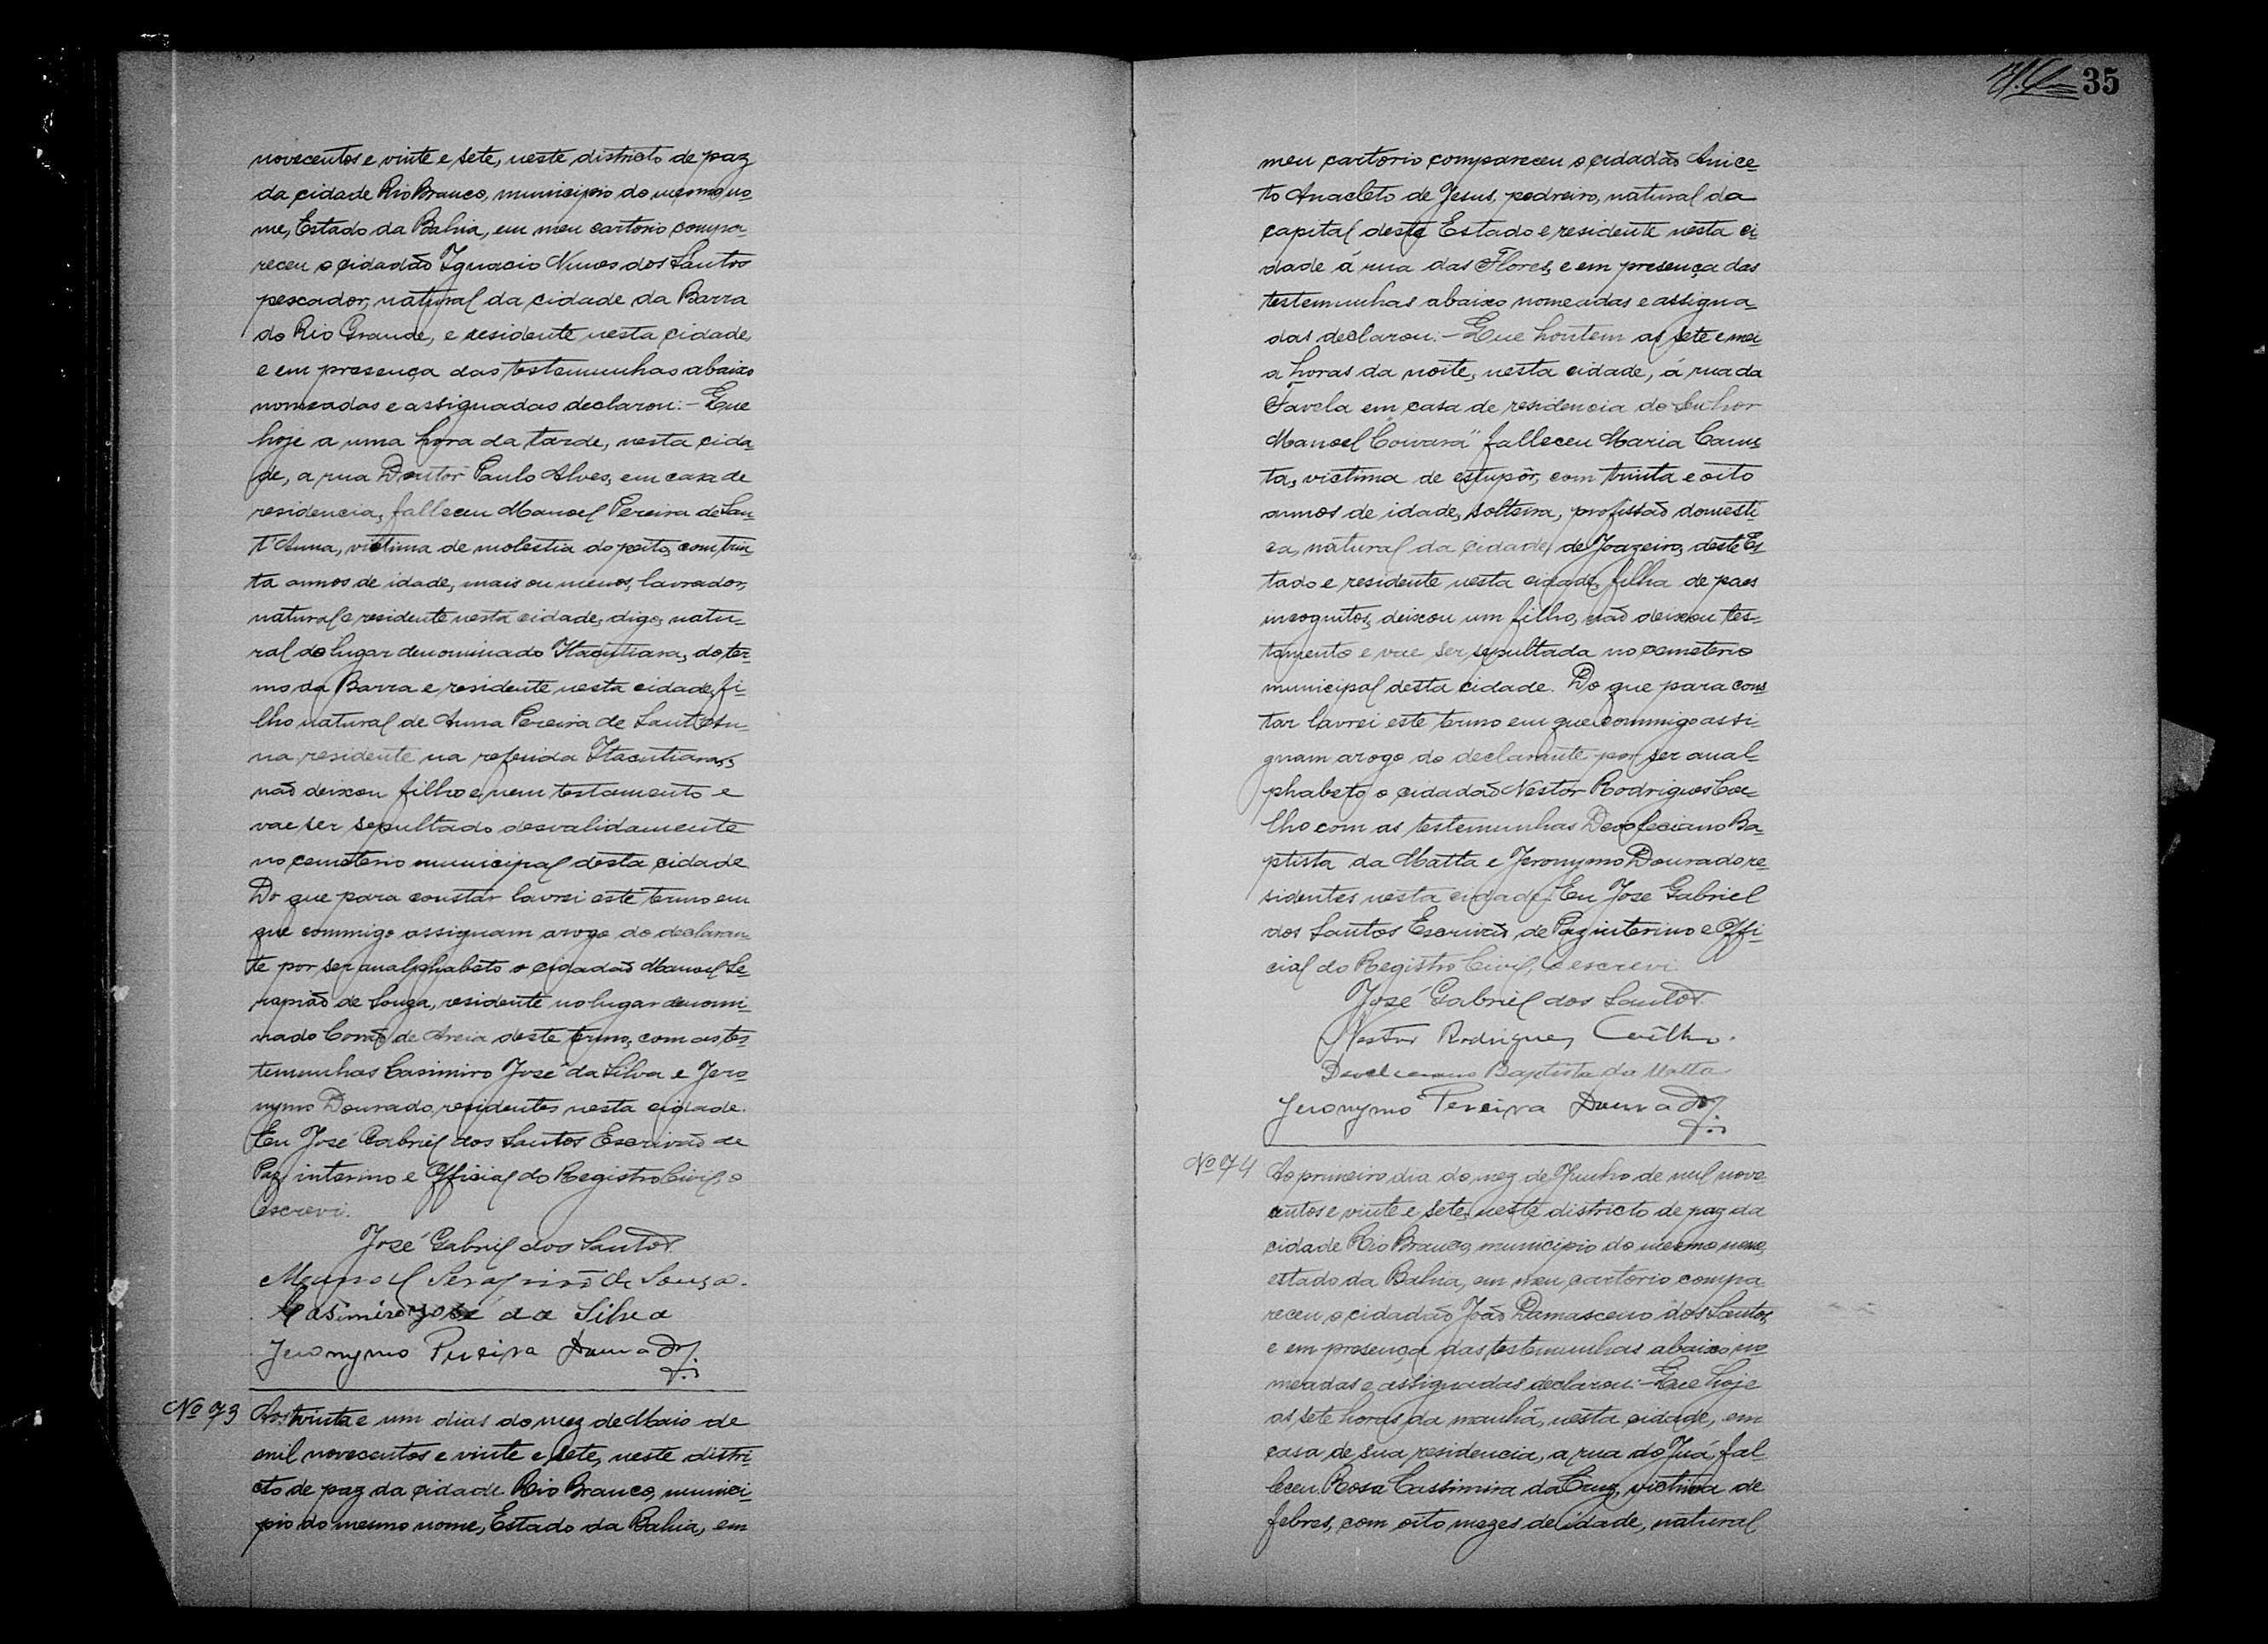 novecentos e vinte e sete, neste districto de paz
da cidade Rio Branco, municipio do mesmo no-
me, Estado da Bahia, em meu cartorio compa-
receu o cidadão Ignacio Nunes dos Santos
pescador, natural da cidade da Barra
do Rio Grande, e residente nesta cidade,
e em presença das testemunhas abaixo
nomeadas e assignadas declarou:- Que
hoje a uma hora da tarde, nesta cida-
de, a rua Doutor Paulo Alves, em casa de
residencia, falleceu Manoel Pereira de San-
t'Anna, victima de molestia do peito, com trin-
ta annos de idade, mais ou menos, lavrador,
natural e residente nesta cidade, digo, natu-
ral do lugar denominado Itacutiara, do ter-
mo da Barra e residente nesta cidade, fi-
lho natural de Anna Pereira de Sant'An-
na, residente na referida Itacutiara,
não deixou filho e nem testamento e
vae ser sepultado desvalidamente
no cemeterio municipal desta cidade
Do que para constar lavrei este termo em
que commigo assignam arogo do declaran-
te por ser analphabeto o cidadão Manoel Se-
rapião de Souza, residente no lugar denomi-
nado de Areia deste termo, com as tes-
temunhas Casimiro José da Silva e Jero-
nymo Dourado, residentes nesta cidade.
Eu José Gabriel dos Santos Escrivão de
Paz interino e Official do Registro Civil, o
escrevi.
José Gabriel dos Santos
Manoel Serapião de Souza.
Casimiro José da Silva
Jeronymo Pereira Dourado
Nº 73 Aos trinta e um dias do mez de Maio de
mil novecentos e vinte e sete, neste distri-
cto de paz da cidade Rio Branco, munici-
pio do mesmo nome, Estado da Bahia, em
35
meu cartorio compareceu o cidadão Anice-
to Anacleto de Jesus, pedreiro, natural da
capital deste Estado e residente nesta ci-
dade á rua das Flores, e em presença das
testemunhas abaixo nomeadas e assigna-
das declarou:- Que hontem as sete e mei-
a horas da noite, nesta cidade, á rua da
Favela em casa de residencia do Senhor
Manoel "Coivara" falleceu Maria Canu-
ta, victima de estupôr, com trinta e oito
annos de idade, solteira, profissão domesti-
ca, natural da cidade de Joazeiro, deste Es-
tado e residente nesta cidade, filha de paes
incognitos, deixou um filho, não deixou tes-
tamento e vae ser sepultada no cemeterio
municipal desta cidade. Do que para cons-
tar lavrei este termo em que commigo assi-
gnam arogo do declarante por ser anal-
phabeto o cidadão Nestor Rodrigues Coe-
lho com as testemunhas Deocleciano Ba-
ptista da Matta e Jeronymo Dourado re-
sidentes nesta cidade. Eu José Gabriel
dos Santos Escrivão de Paz interino e Offi-
cial do Registro Civil, o escrevi.
José Gabriel dos Santos
Nestor Rodrigues Coêlho.
Baptista da Matta
Jeronymo Pereira Dourado
Nº 74 Ao primeiro dia do mez de Junho de mil nove-
centos e vinte e sete, neste districto de paz da
cidade Rio Branco, municipio do mesmo nome,
estado da Bahia, em meu cartorio compa-
receu o cidadão João Damasceno dos Santos,
e em presença das testemunhas abaixo no-
meadas e assignadas declarou:- Que hoje
as sete horas da manhã, nesta cidade, em
casa de sua residencia, a rua do Juá, fal-
leceu Rosa Cassimira da Cruz, victima de
febres, com oito mezes de idade, natural